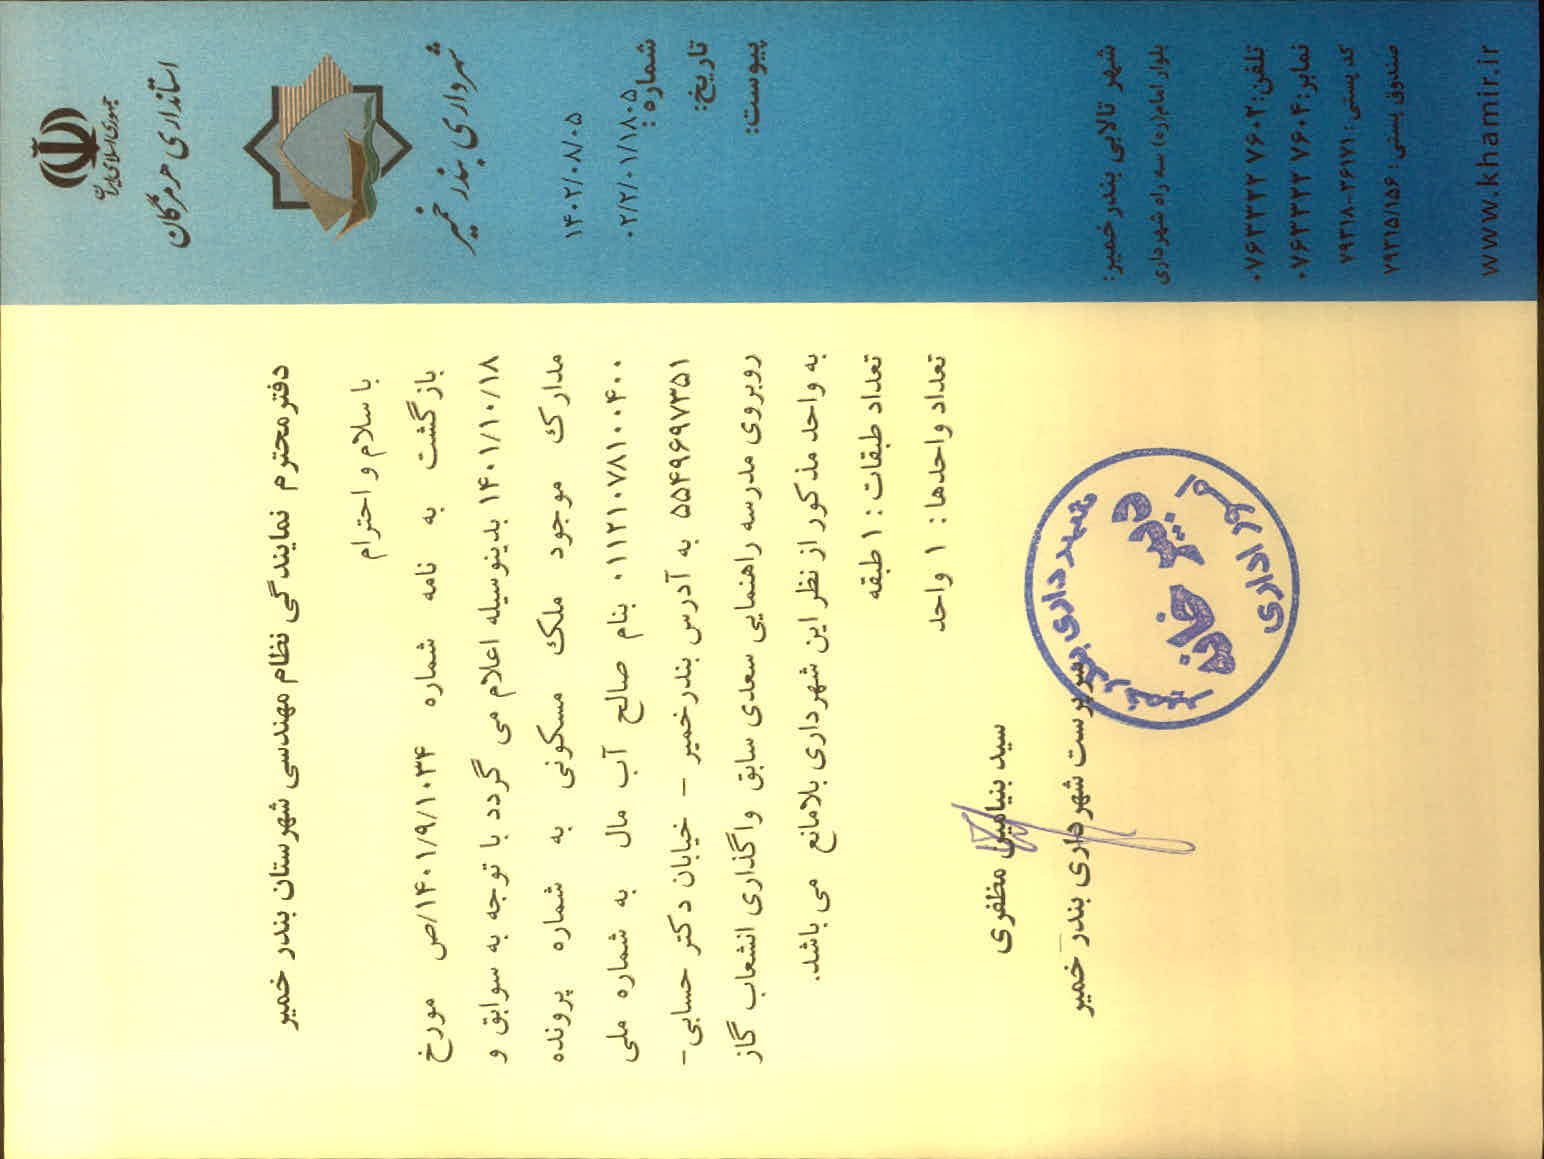 جمهوری اسلامی ایران
استانداری هرمزگان
شهرداری بندر خمیر
۱۴۰۲/۰۸/۰۵
شماره: ۰۲/۲/۰۱/۱۸۰۵
تاریخ:
پیوست:
شهر تالابی بندر خمیر:
بلوار امام(ره) سه راه شهرداری
تلفن: ۰۷۶۳۳۲۲۷۶۰۲
نمابر: ۰۷۶۳۳۲۲۷۶۰۴
کد پستی: ۷۹۳۱۸-۳۶۱۷۱
صندوق پستی: ۷۹۳۱۵/۱۵۶
www.khamir.ir
دفتر محترم نمایندگی نظام مهندسی شهرستان بندر خمیر
با سلام و احترام
بازگشت به نامه شماره ۱۴۰۱/۹/۱۰۳۴/ص مورخ
۱۴۰۱/۱۰/۱۸ بدینوسیله اعلام می گردد با توجه به سوابق و
مدارک موجود ملک مسکونی به شماره پرونده
۰۱۱۲۱۰۷۸۱۰۰۴۰۰ بنام صالح آب مال به شماره ملی
۵۵۴۹۶۹۷۳۵۱ به آدرس بندرخمیر – خیابان دکتر حسابی-
روبروی مدرسه راهنمایی سعدی سابق واگذاری انشعاب گاز
به واحد مذکور از نظر این شهرداری بلامانع می باشد.
تعداد طبقات : ۱ طبقه
تعداد واحدها : ۱ واحد
سید بنیامین مظفری
سرپرست شهرداری بندر خمیر
شهرداری بندر خمیر
دبیرخانه
امور اداری